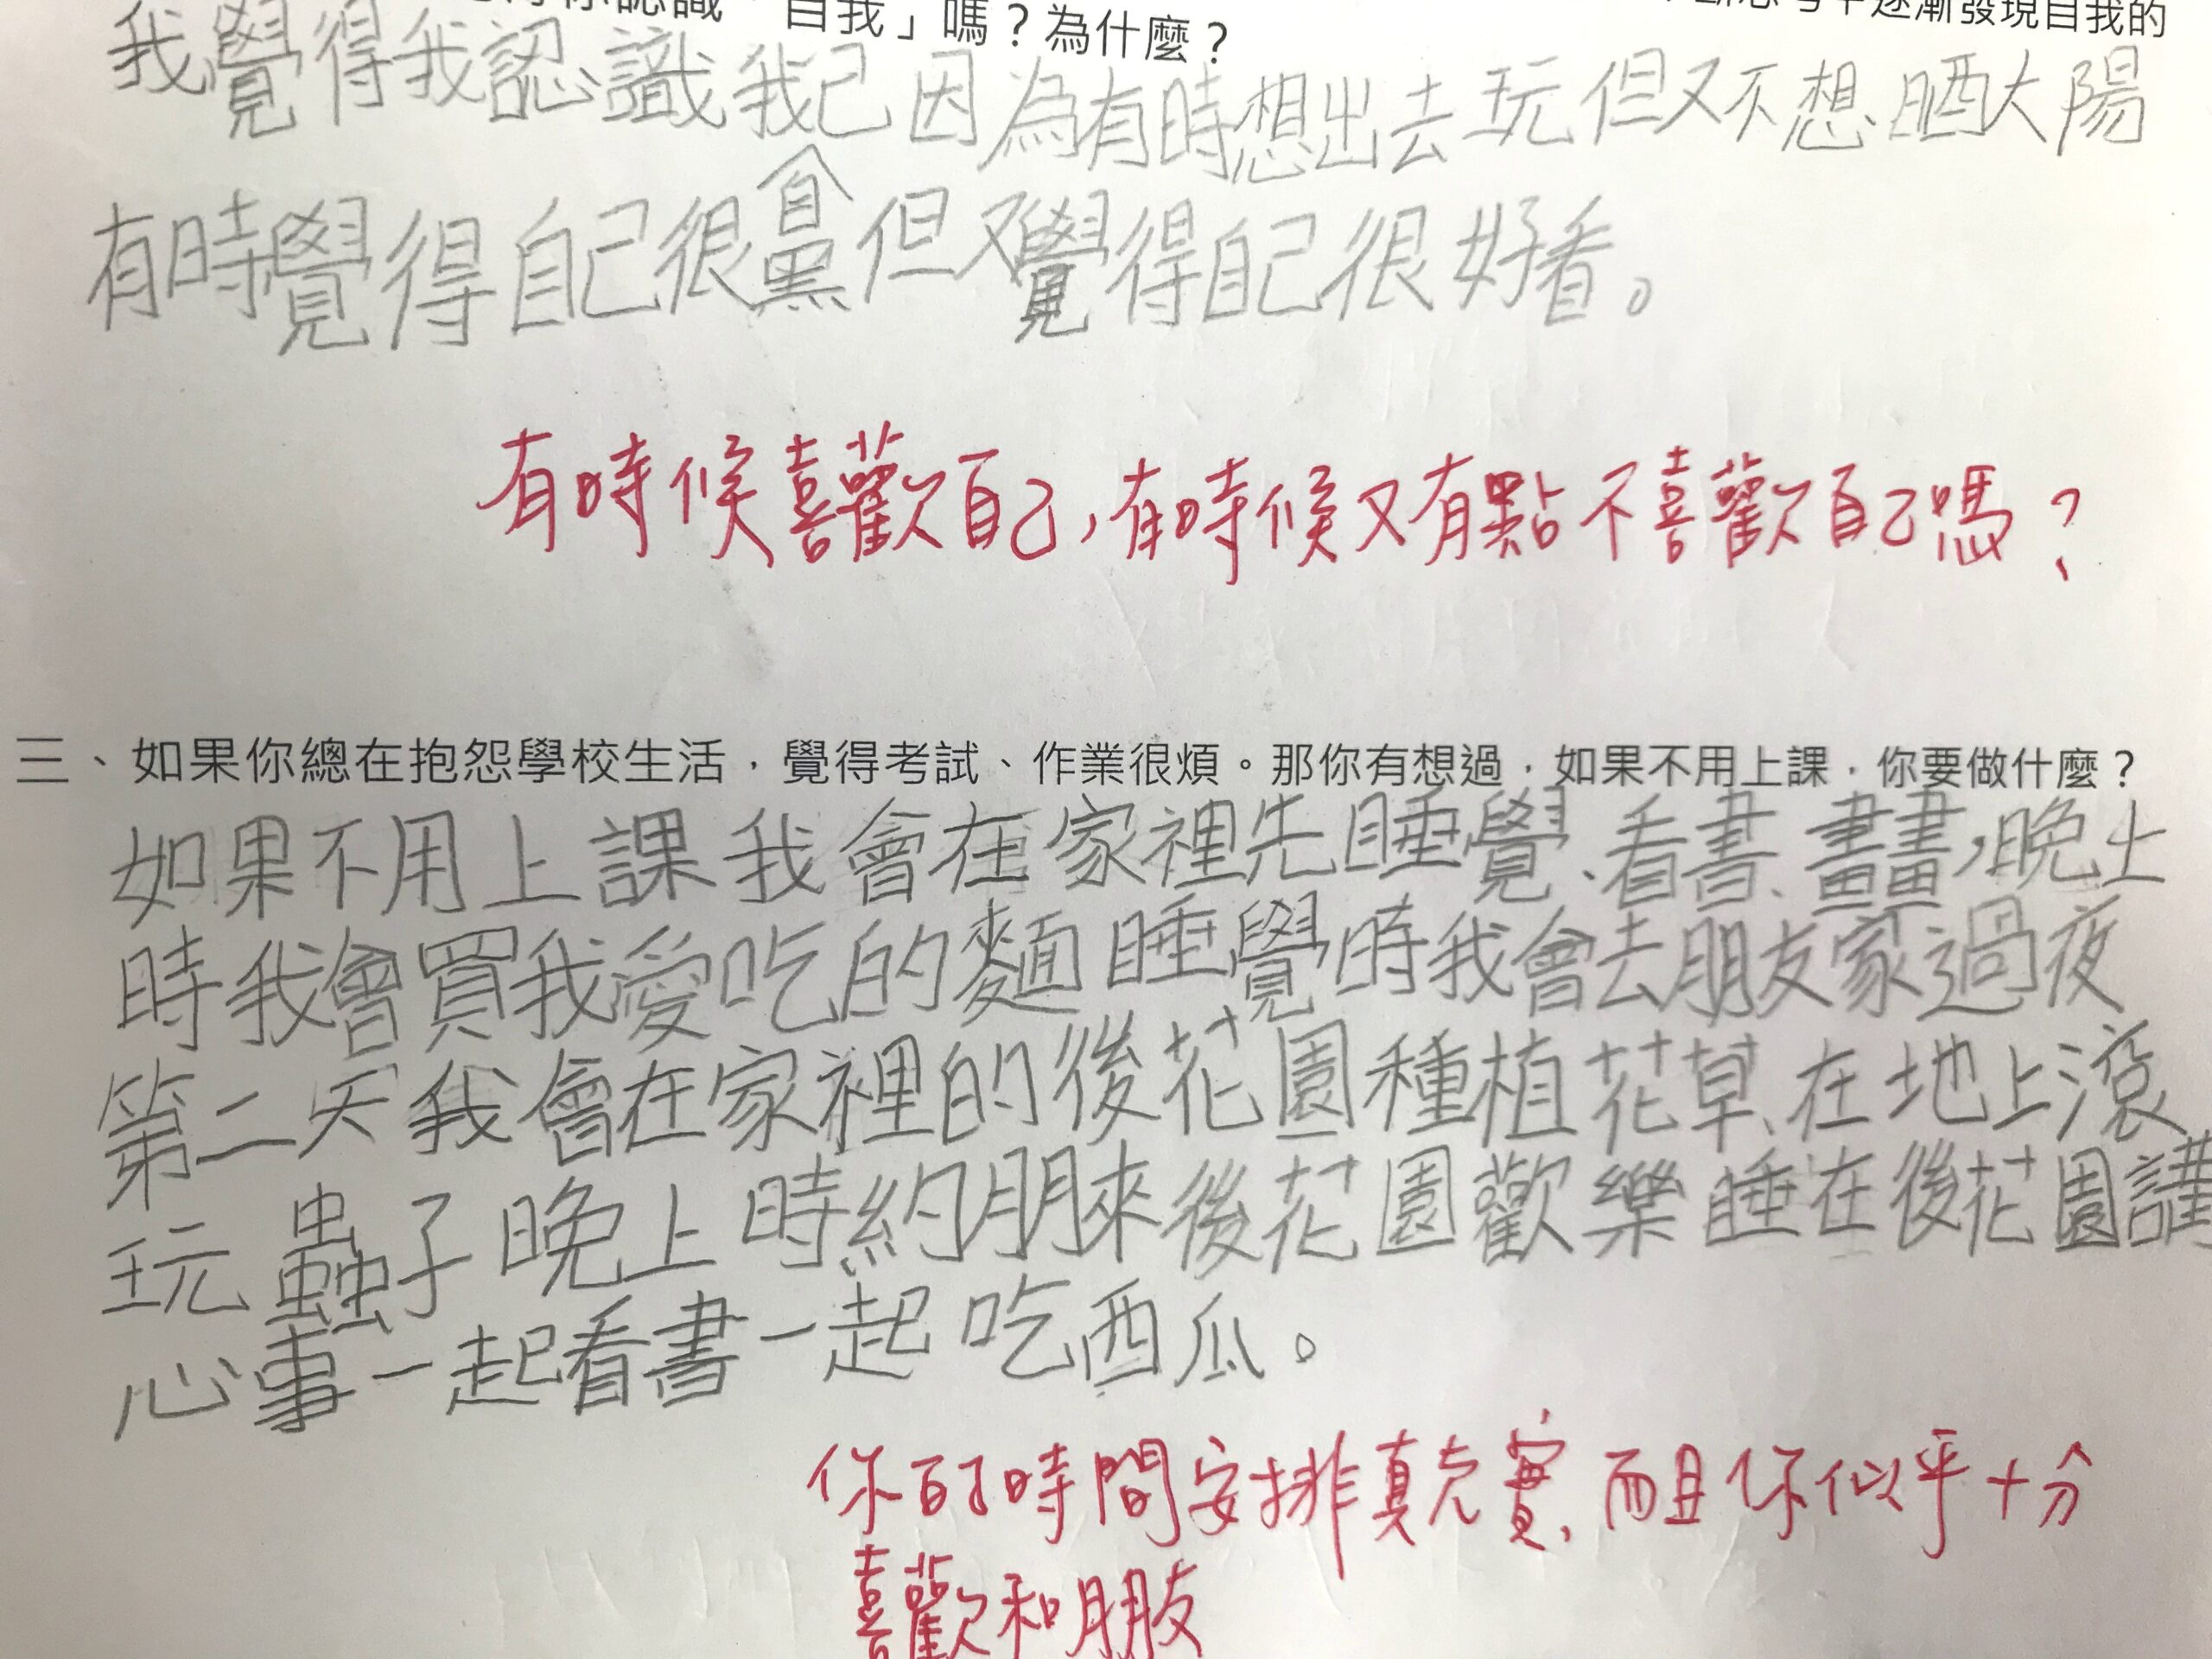 認識「自我」嗎？為什麼？
逐漸發現自我的
我覺得我認識我己因為有時想出去玩但又不想晒大陽
有時覺得自己很黑但又覺得自己很好看。
有時候喜歡自己,有時候又有點不喜歡自己嗎？
三、如果你總在抱怨學校生活，覺得考試、作業很煩。那你有想過，如果不用上課，你要做什麼？
如果不用上課我會在家裡先睡覺、看書、畫畫,晚上
時我會買我愛吃的麵睡覺時我會去朋友家過夜
第二天我會在家裡的後花園種植花草、在地上滾
玩蟲子晚上時約朋來後花園歡樂睡在後花園講
心事一起看書一起吃西瓜。
你的時間安排真充實,而且你似乎十分
喜歡和朋友